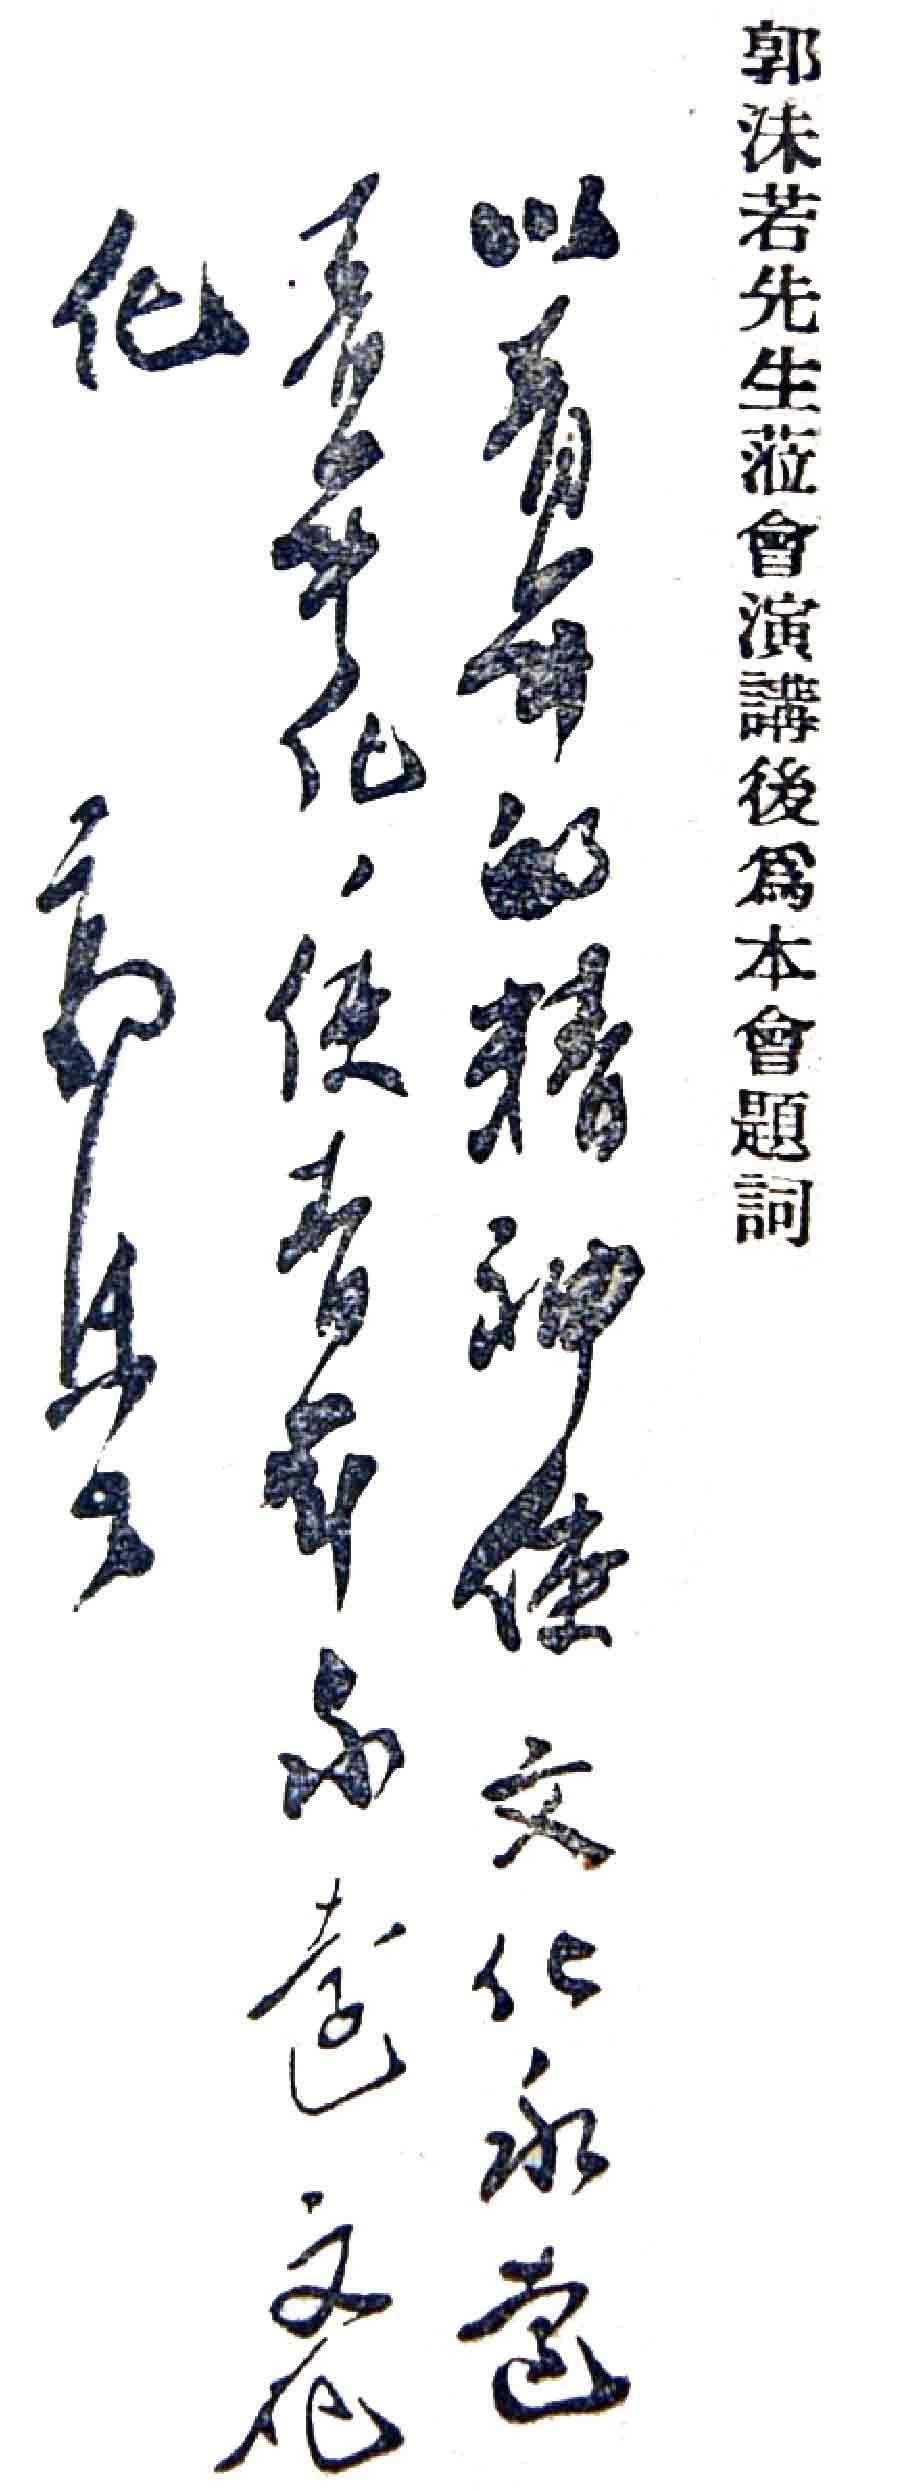 郭沫若先生蒞會演講後爲本會題詞
以青年的精神使文化永遠
青年化、使青年永遠文化
化 郭沫若